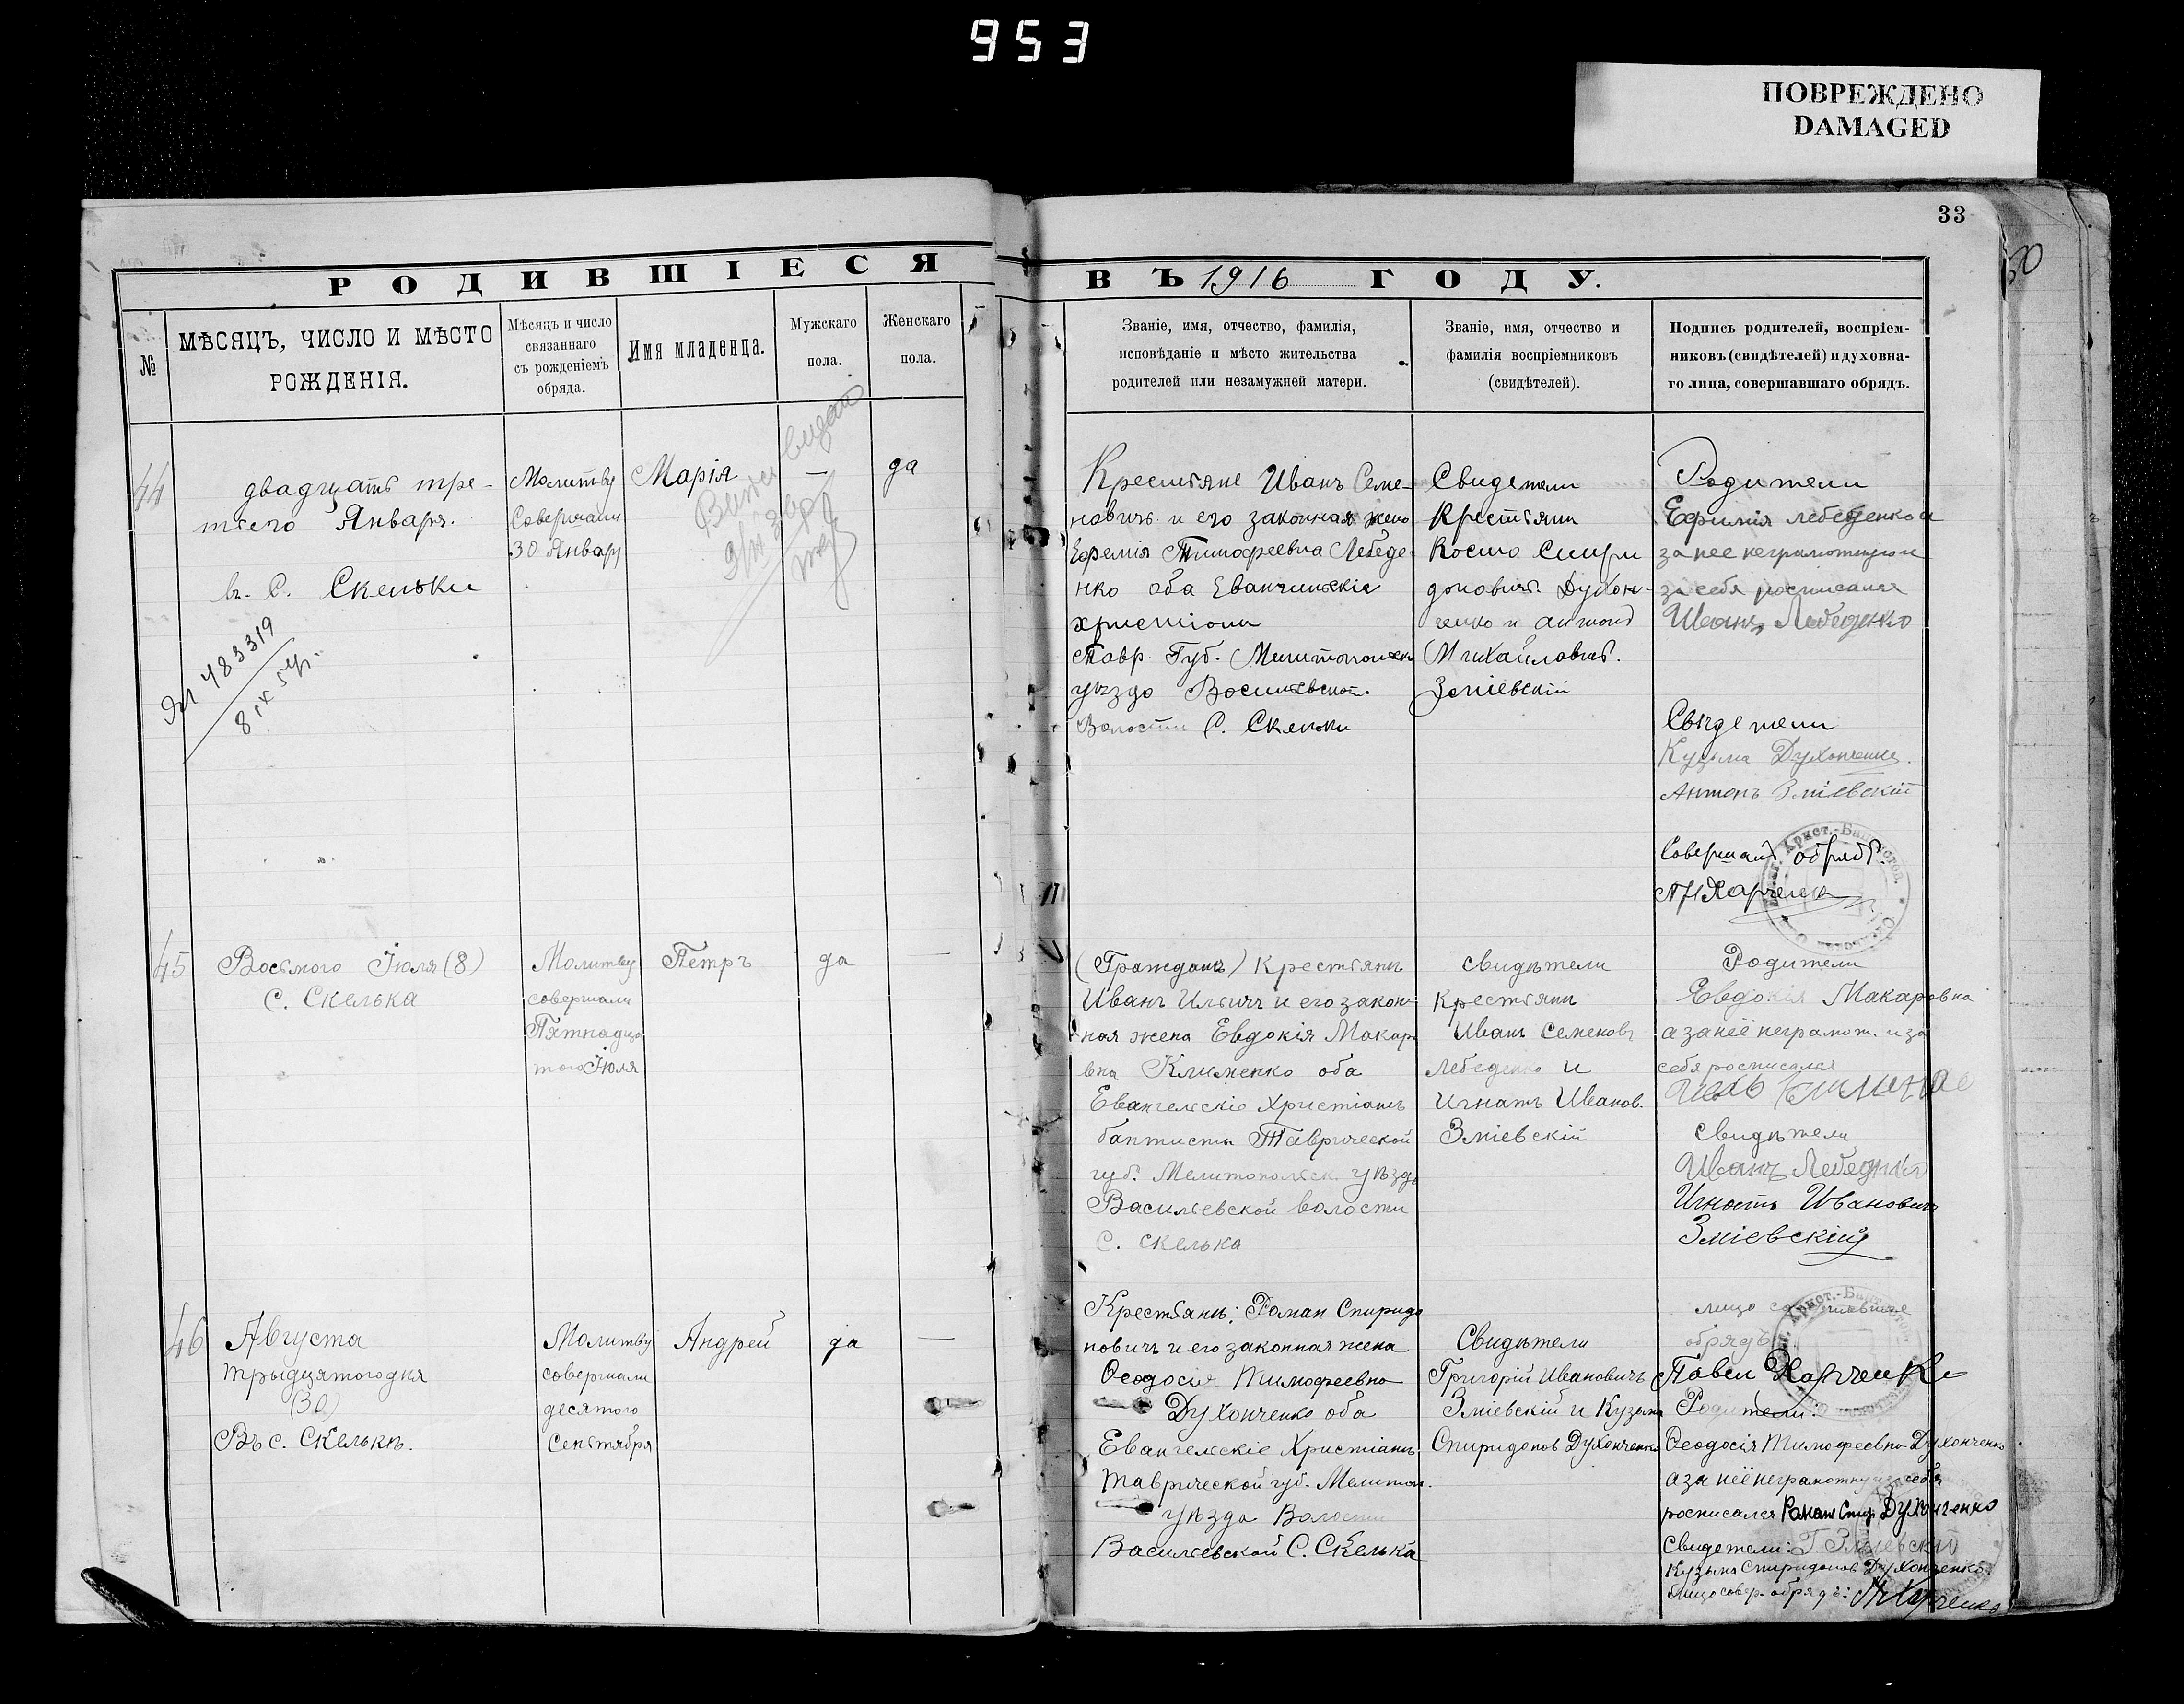 953
ПОВРЕЖДЕНО
DAMAGED
33
50
РОДИВШІЕСЯ
ВЪ 1916 ГОДУ.
№
МѢСЯЦЪ, ЧИСЛО И МѢСТО
РОЖДЕНІЯ.
Мѣсяцъ и число
связаннаго
съ рожденіемъ
обряда.
Имя младенца.
Мужскаго
пола.
Женскаго
пола.
Званіе, имя, отчество, фамилія,
исповѣданіе и мѣсто жительства
родителей или незамужней матери.
Званіе, имя, отчество и
фамилія воспріемниковъ
(свидѣтелей).
Подпись родителей, воспріем-
никовъ (свидѣтелей) и духовна-
го лица, совершавшаго обрядъ.
44
двадцать тре-
тьего Января.
въ. С. Скельки
483319
Молитву
Совершали
30 Январ
Марія
—
да
Крестяне Иванъ Семе-
новичъ и его законная жена
Ефемія Тимофеевна Лебеде-
нко оба Евангильскіе
христіони
Тавр. Губ. Мелитопольск
уѣздо Восильевской.
Волости С. Скельки
Свидетели
Крестьяни
Космо Спири
доновичъ Духон-
ченко и антонъ
Михайловичъ.
Зміевскій
Родители
Ефимія лебеденкова
за нее неграмотную и
за себя росписался
Иванъ Лебеденко
Свидетели
Кузьма Духонченко.
Антонъ Зміевскій
Совершалъ обрядъ.
П Н Харченк
45
Восьмого Іюля (8)
С. Скелька
Молитву
совершали
Пятнадца
того Іюля
Петръ
да
—
(Граждане) Крестьяне
Иванъ Ильичъ и его закон-
ная жена Евдокія Макаро
вна Клименко оба
Евангельскіе Христіанъ
баптисты Таврической
губ. Мелитопольск. уѣзда
Васильевской волости
С. Скелька
свидѣтели
Крестьяни
Иванъ Семеновъ
Лебеденко и
Игнатъ Иванов.
Зміевскій
Родители
Евдокія Макаровна
а за неё неграмот. и за
себя росписался
свидѣтели
Иванъ Лебеденко
Игнатъ Ивановичъ
Зміевскій
лицо совершившее
обрядъ
Павел Харченко
46
Августа
Трыдцятого дня
(30)
Въ с. Скелькѣ.
Молитву
совершали
десятого
Сентября
Андрей
да
—
Крестьянъ: Роман Спиридо
новичъ и его законная жена
Феодосія Тимофеевна
Духонченко оба
Евангельскіе Христіанъ.
Таврической губ. Мелитоп.
уѣзда Волости
Васильевской С. Скелька
Свидѣтели
Григорій Ивановичъ
Зміевскій и Кузьма
Спиридонов Духонченко
Родители:
Феодосія Тимофеевна Духонченко
а за неё неграмотну и за себя
росписался Роман Спир Духонченко
Свидетели: Г. Зміевскій
Кузьма Спиридонов Духонченко
Лицо совер. обрядъ: П Н Харченко